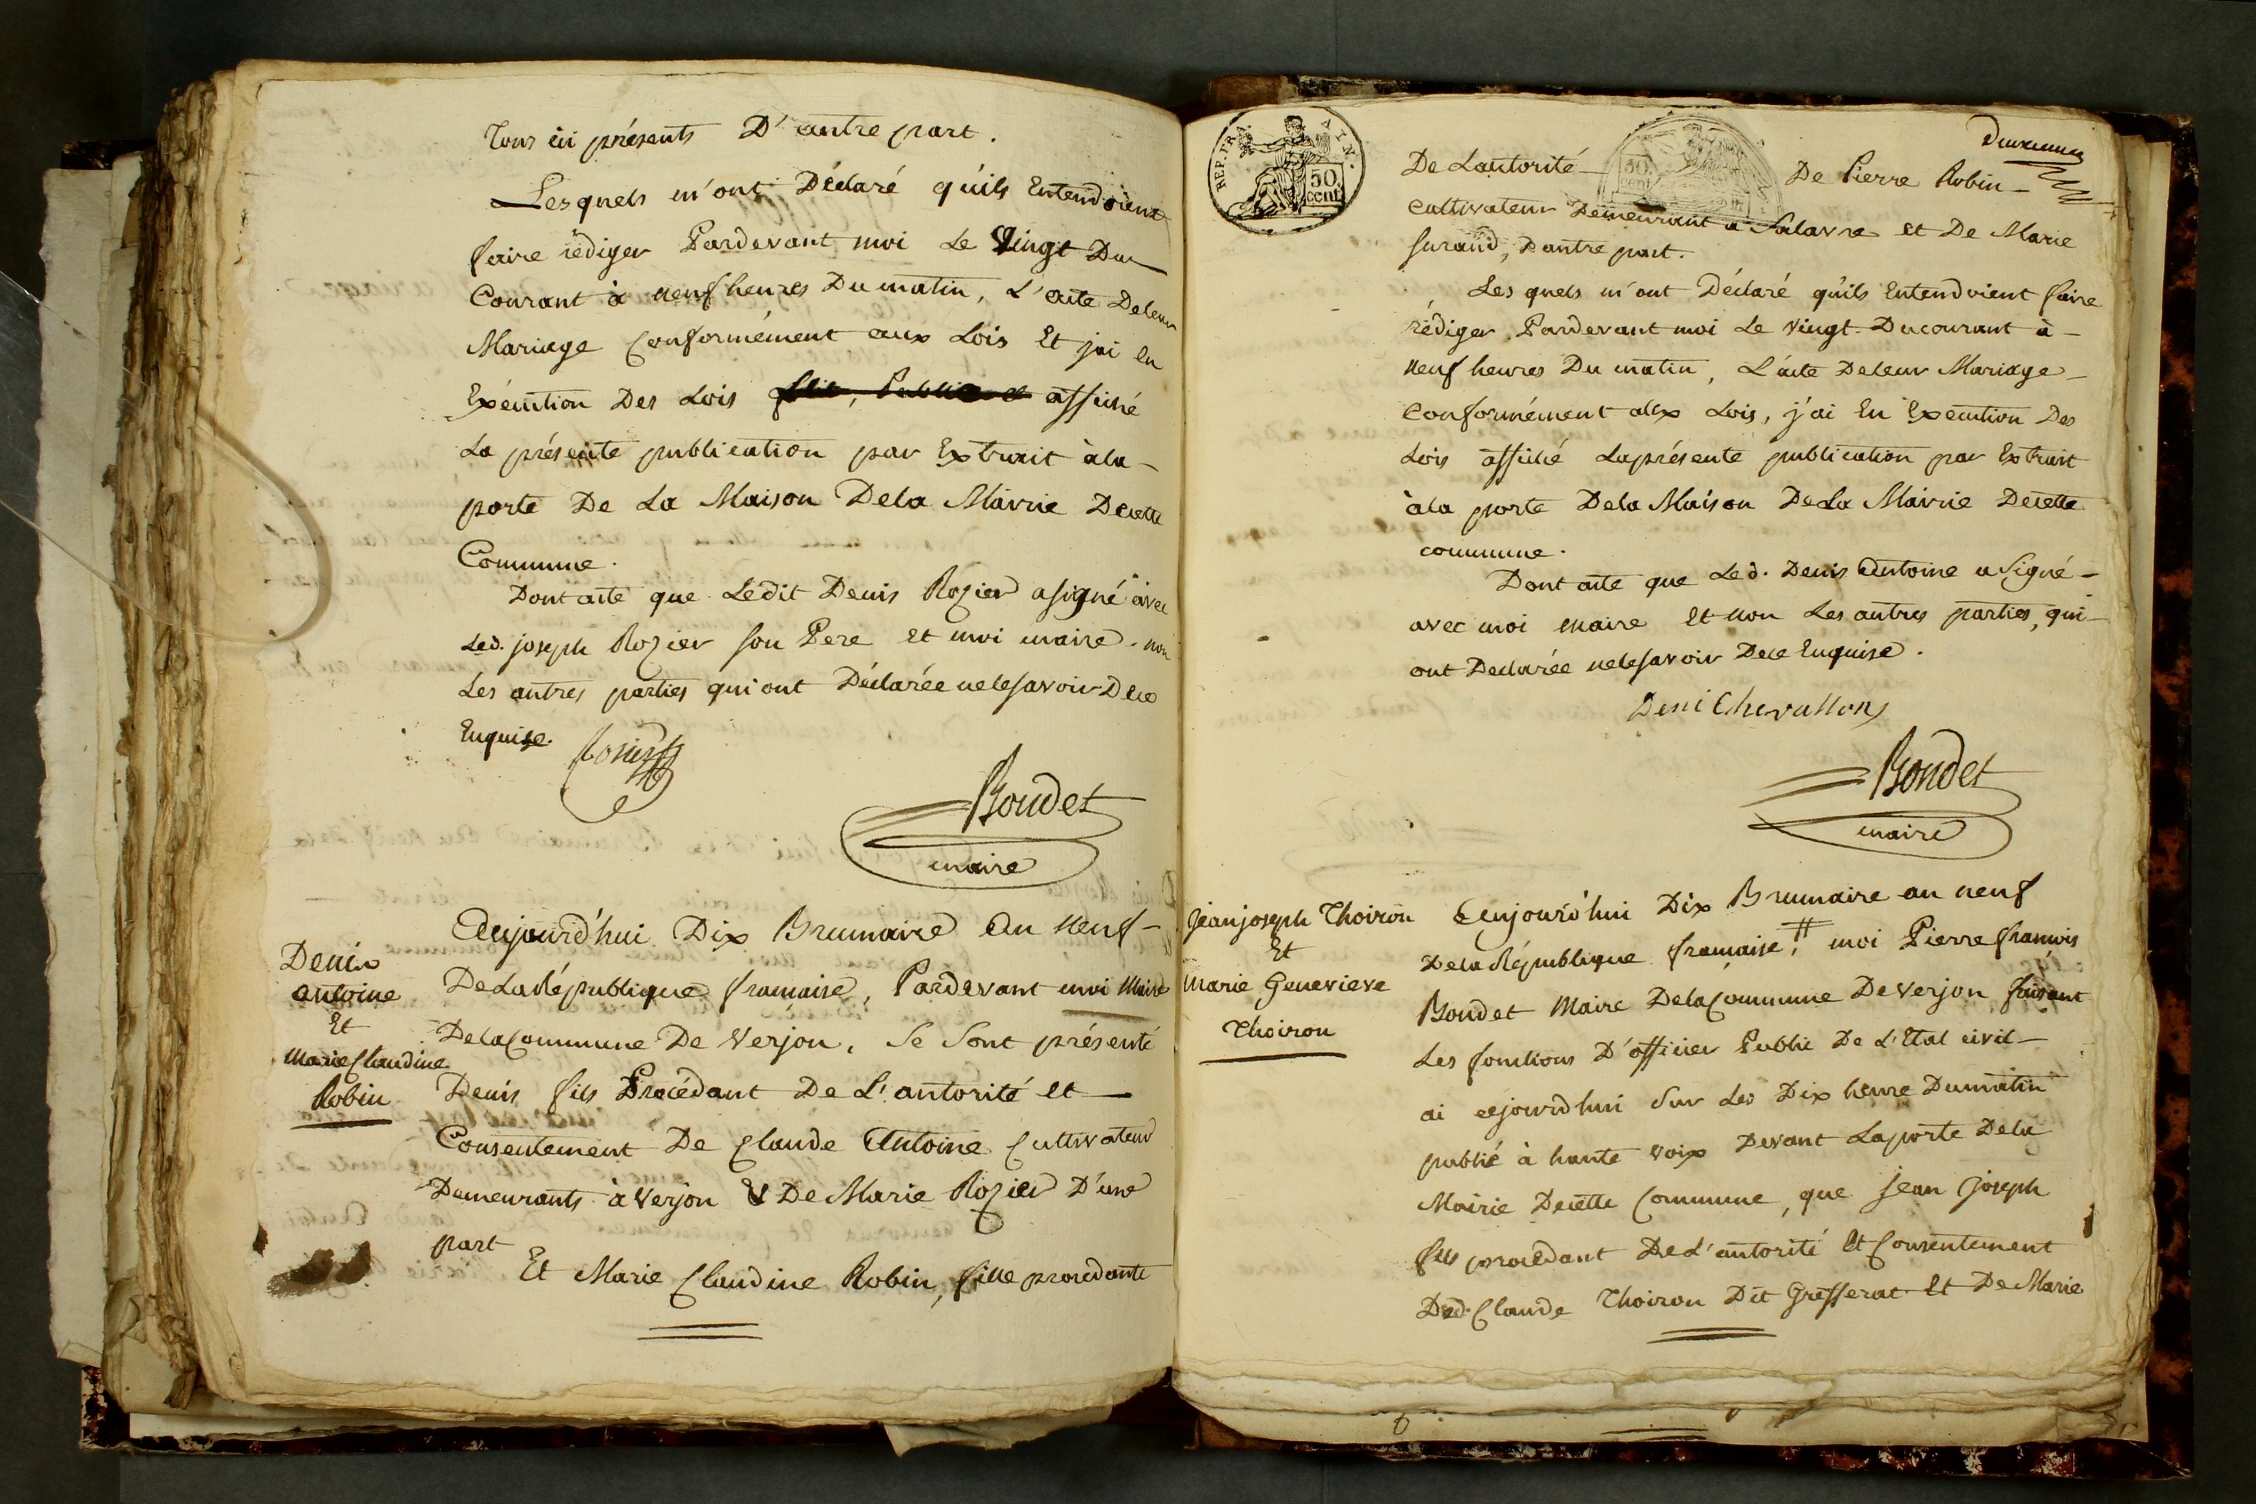 Tous ici présents D'autre part.
Lesquels m'ont Déclaré qu'ils Entendoient
faire rédiger Pardevant moi Le Vingt Du
Courant à neuf heures Du matin, L'acte Deleur
Mariage Conformément aux Lois Et j'ai En
Exécution Des Lois affiché
La présente publication par Extrait àla
porte De La Maison Dela Mairie Decette
Commune.
Dont acte que Ledit Denis Rozier asigné avec
Led. joseph Rozier son Pere et moi maire. non
Les autres parties qui ont Déclarée nelesavoir Dece
Enquise.
Rosier
Boudet
maire
Denis
antoine
Et
Marie Claudine
Robin
Aujourd'hui Dix Brumaire An neuf
DeLaRépublique française, Pardevant moi Maire
DelaCommune De Verjon, Se Sont présenté
Denis fils Procédant De L'autorité et
Consentement De Claude Antoine Cultivateur
Demeurants à Verjon & De Marie Rozier D'une
part
Et Marie Claudine Robin, fille procedante
REP. FRA. AIN.
50 cent
De Lautorité De Pierre Robin
cultivateur Demeurant a Salavre et De Marie
surand, Dautre part.
Les quels m'ont Déclaré qu'ils Entendoient faire
rédiger Pardevant moi Le vingt Ducourant à
neuf heures Du matin, L'acte Deleur Mariage
conformément aux Lois, j'ai En Execution Des
Lois affiché Laprésente publication par Extrait
àla porte Dela Maison DeLa Mairie Decette
commune.
Dont acte que Led. Denis Antoine a Signé
avec moi maire Et non Les autres parties, qui
ont Declarée nelesavoir Dece Enquise.
Deni Chevallon
Boudet
maire
Jean joseph Thoiron
Et
Marie Genevieve
Thoiron
Aujourd'hui Dix Brumaire an neuf
Dela République française, # moi Pierre françois
Boudet Maire DelaCommune De Verjon faisant
Les fonctions D'officier Public De L'Etat civil
ai aejourd'hui Sur Les Dix heure Dumatin
publié à haute voix Devant Laporte Dela
Mairie Decette Commune, que Jean Joseph
fils procedant DeL'autorité Et Consentement
Ded. Claude Thoiron Dit Grifferat Et De Marie